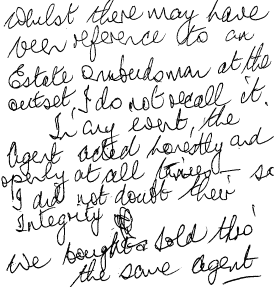 Whilst there may have
been reference to an
Estate Ombudsman at the
outset, I do not recall it.
In any event, the
Agent acted honestly and
openly at all times so
I did not doubt their
Integrity
We bought & sold thro'
the same agent